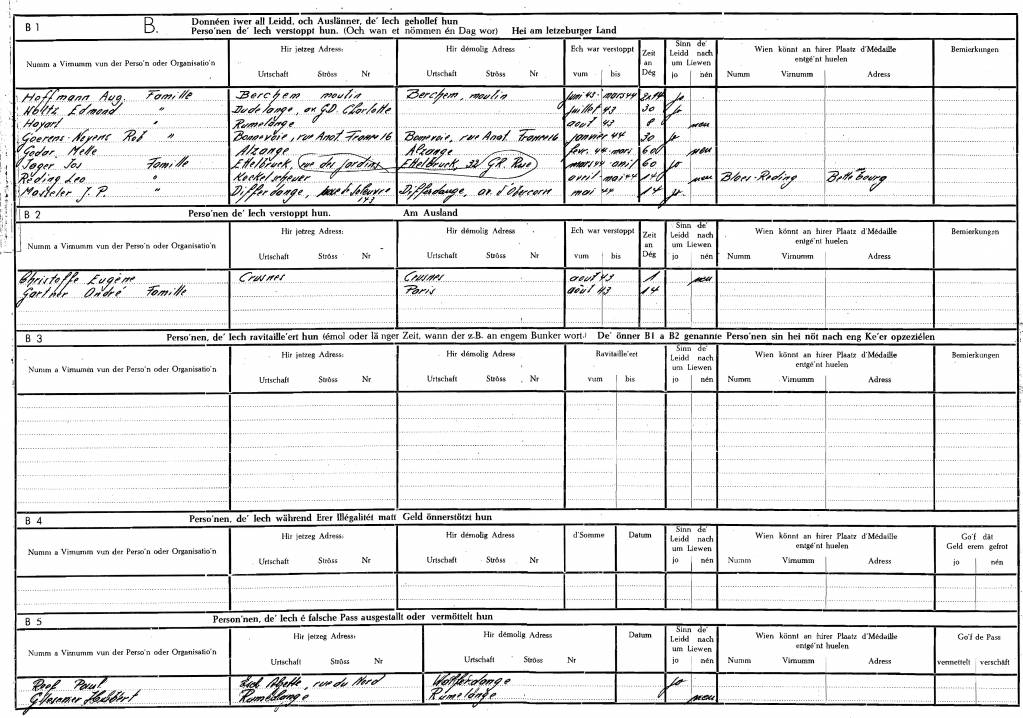 B 1
B.
Donnéen iwer all Leidd, och Auslänner, de' Iech gehollef hun
Perso'nen de' Iech verstoppt hun. (Och wan et nömmen én Dag wor) Hei am letzeburger Land
Numm a Virnumm vun der Perso'n oder Organisatio'n
Hir jetzeg Adress:
Urtschaft Ströss Nr
Hir démolig Adress
Urtschaft Ströss Nr
Ech war verstoppt
vum bis
Zeit an Dég
Sinn de' Leidd nach um Liewen
jo nén
Wien könnt an hirer Plaatz d'Médaille entgé'nt huelen
Numm Virnumm Adress
Bemierkungen
Hoffmann Aug. Famille Berchem moulin Berchem, moulin juni 43 - mars 44 jo
Holtz Edmond " Dudelange, av. G.D. Charlotte juillet 43 30 jo
Hoyart " Rumelange aout 43 8 neu
Goerens-Neyens Rob " Bonnevoie, rue Anat. France 16 Bonevoie, rue Anat. France 16 janvier 44 30 jo
Godar Melle Alzange Alzange fevr. 44 - mars 60 neu
Jager Jos Famille Ettelbruck, rue du Jardins Ettelbruck, 32 GR. Rue mars 44 avril 60 jo
Reding Leo " Kockelscheuer avril - mai 44 14 neu Bloes-Reding Bettembourg
Masteler J.P. " Differdange, Soleuvre 143 Differdange, av. d'Obercorn mai 44 14 jo
B 2
Perso'nen de' Iech verstoppt hun. Am Ausland
Numm a Virnumm vun der Perso'n oder Organisatio'n
Hir jetzeg Adress:
Urtschaft Ströss Nr
Hir démolig Adress
Urtschaft Ströss Nr
Ech war verstoppt
vum bis
Zeit an Dég
Sinn de' Leidd nach um Liewen
jo nén
Wien könnt an hirer Plaatz d'Médaille entgé'nt huelen
Numm Virnumm Adress
Bemierkungen
Christoffe Eugène Crusnes Crusnes aout 43 1 neu
Gartner André Famille Paris aôut 43 14
B 3
Perso'nen, de' Iech ravitaille'ert hun (émol oder lä nger Zeit, wann der z.B. an engem Bunker wort.) De' önner B1 a B2 genannte Perso'nen sin hei nöt nach eng Ke'er opzeziélen
Numm a Virnumm vun der Perso'n oder Organisatio'n
Hir jetzeg Adress:
Urtschaft Ströss Nr
Hir démolig Adress
Urtschaft Ströss Nr
Ravitaille'ert
vum bis
Sinn de' Leidd nach um Liewen
jo nén
Wien könnt an hirer Plaatz d'Médaille entgé'nt huelen
Numm Virnumm Adress
Bemierkungen
B 4
Perso'nen, de' Iech während Erer Illégalitét matt Geld önnerstötzt hun
Numm a Virnumm vun der Perso'n oder Organisatio'n
Hir jetzeg Adress:
Urtschaft Ströss Nr
Hir démolig Adress
Urtschaft Ströss Nr
d'Somme
Datum
Sinn de' Leidd nach um Liewen
jo nén
Wien könnt an hirer Plaatz d'Médaille entgé'nt huelen
Numm Virnumm Adress
Go'f dät Geld erem gefrot
jo nén
B 5
Person'nen, de' Iech é falsche Pass ausgestallt oder vermöttelt hun
Numm a Virnumm vun der Perso'n oder Organisatio'n
Hir jetzeg Adress:
Urtschaft Ströss Nr
Hir démolig Adress
Urtschaft Ströss Nr
Datum
Sinn de' Leidd nach um Liewen
jo nén
Wien könnt an hirer Plaatz d'Médaille entgé'nt huelen
Numm Virnumm Adress
Go'f de Pass
vermettelt verschäft
Paul rue du Nord jo
Rumelange Rumelange neu